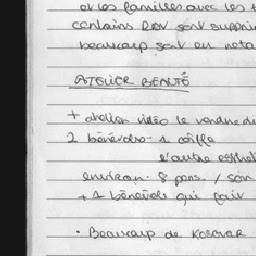 et les familles avec les
certains RDV sont supprim
beaucoup sont en nota
ATELIER BEAUTÉ
+ atelier vidéo le vendredi
2 bénévoles - 1 coiffe
l'autre esthét
environ 8 pers. / son
+ 1 bénévole qui fait
• Beaucoup de KOSOVAR